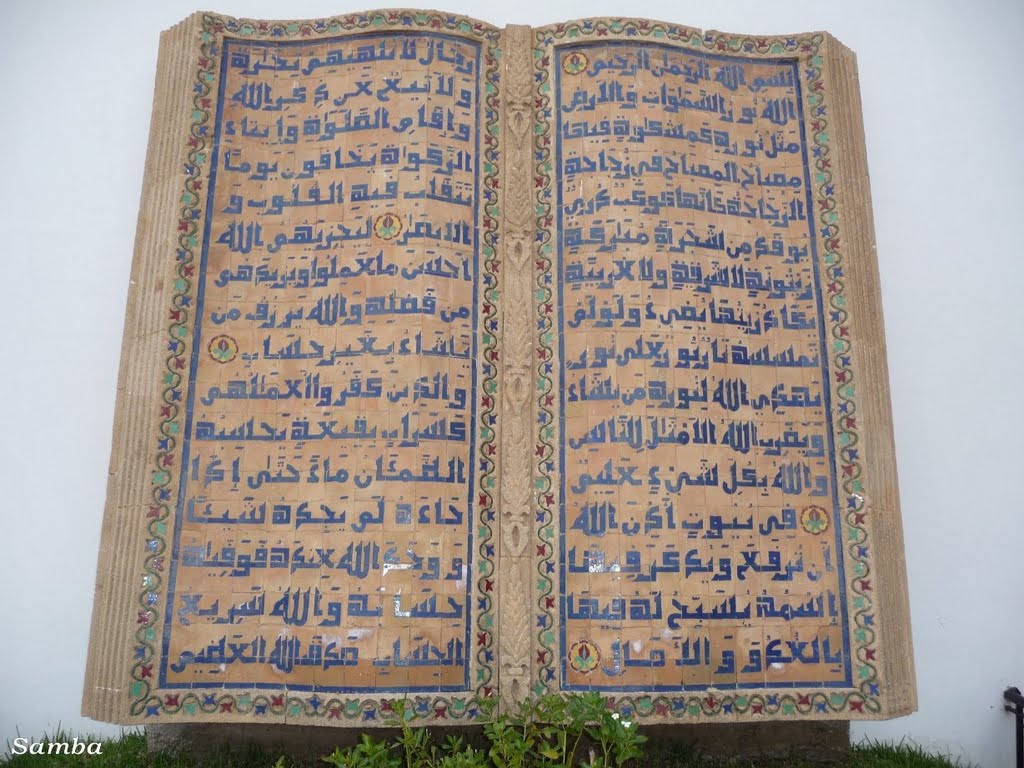 بسم الله الرحمن الرحيم
الله نور السموات والارض
مثل نوره كمشكوة فيها
مصباح المصباح في زجاجة
الزجاجة كانها كوكب دري
يوقد من شجرة مباركة
زيتونة لا شرقية ولا غربية
يكاد زيتها يضيء ولو لم
تمسسه نار نور على نور
يهدي الله لنوره من يشاء
ويضرب الله الامثل للناس
والله بكل شيء عليم
في بيوت أذن الله
أن ترفع ويذكر فيها
اسمه يسبح له فيها
بالغدو والاصال
رجال لا تلهيهم تجارة
ولا بيع عن ذكر الله
وإقام الصلوة وإيتاء
الزكواة يخافون يوما
تتقلب فيه القلوب و
الابصر ليجزيهم الله
احسن ما عملوا ويزيدهم
من فضله والله يرزق من
يشاء بغير حساب
والذين كفروا اعملهم
كسراب بقيعة يحسبه
الظمئان ماء حتى إذا
جاءه لم يجده شيئا
و وجد الله عنده فوفيه
حسابه والله سريع
الحساب صدق الله العظيم
Samba